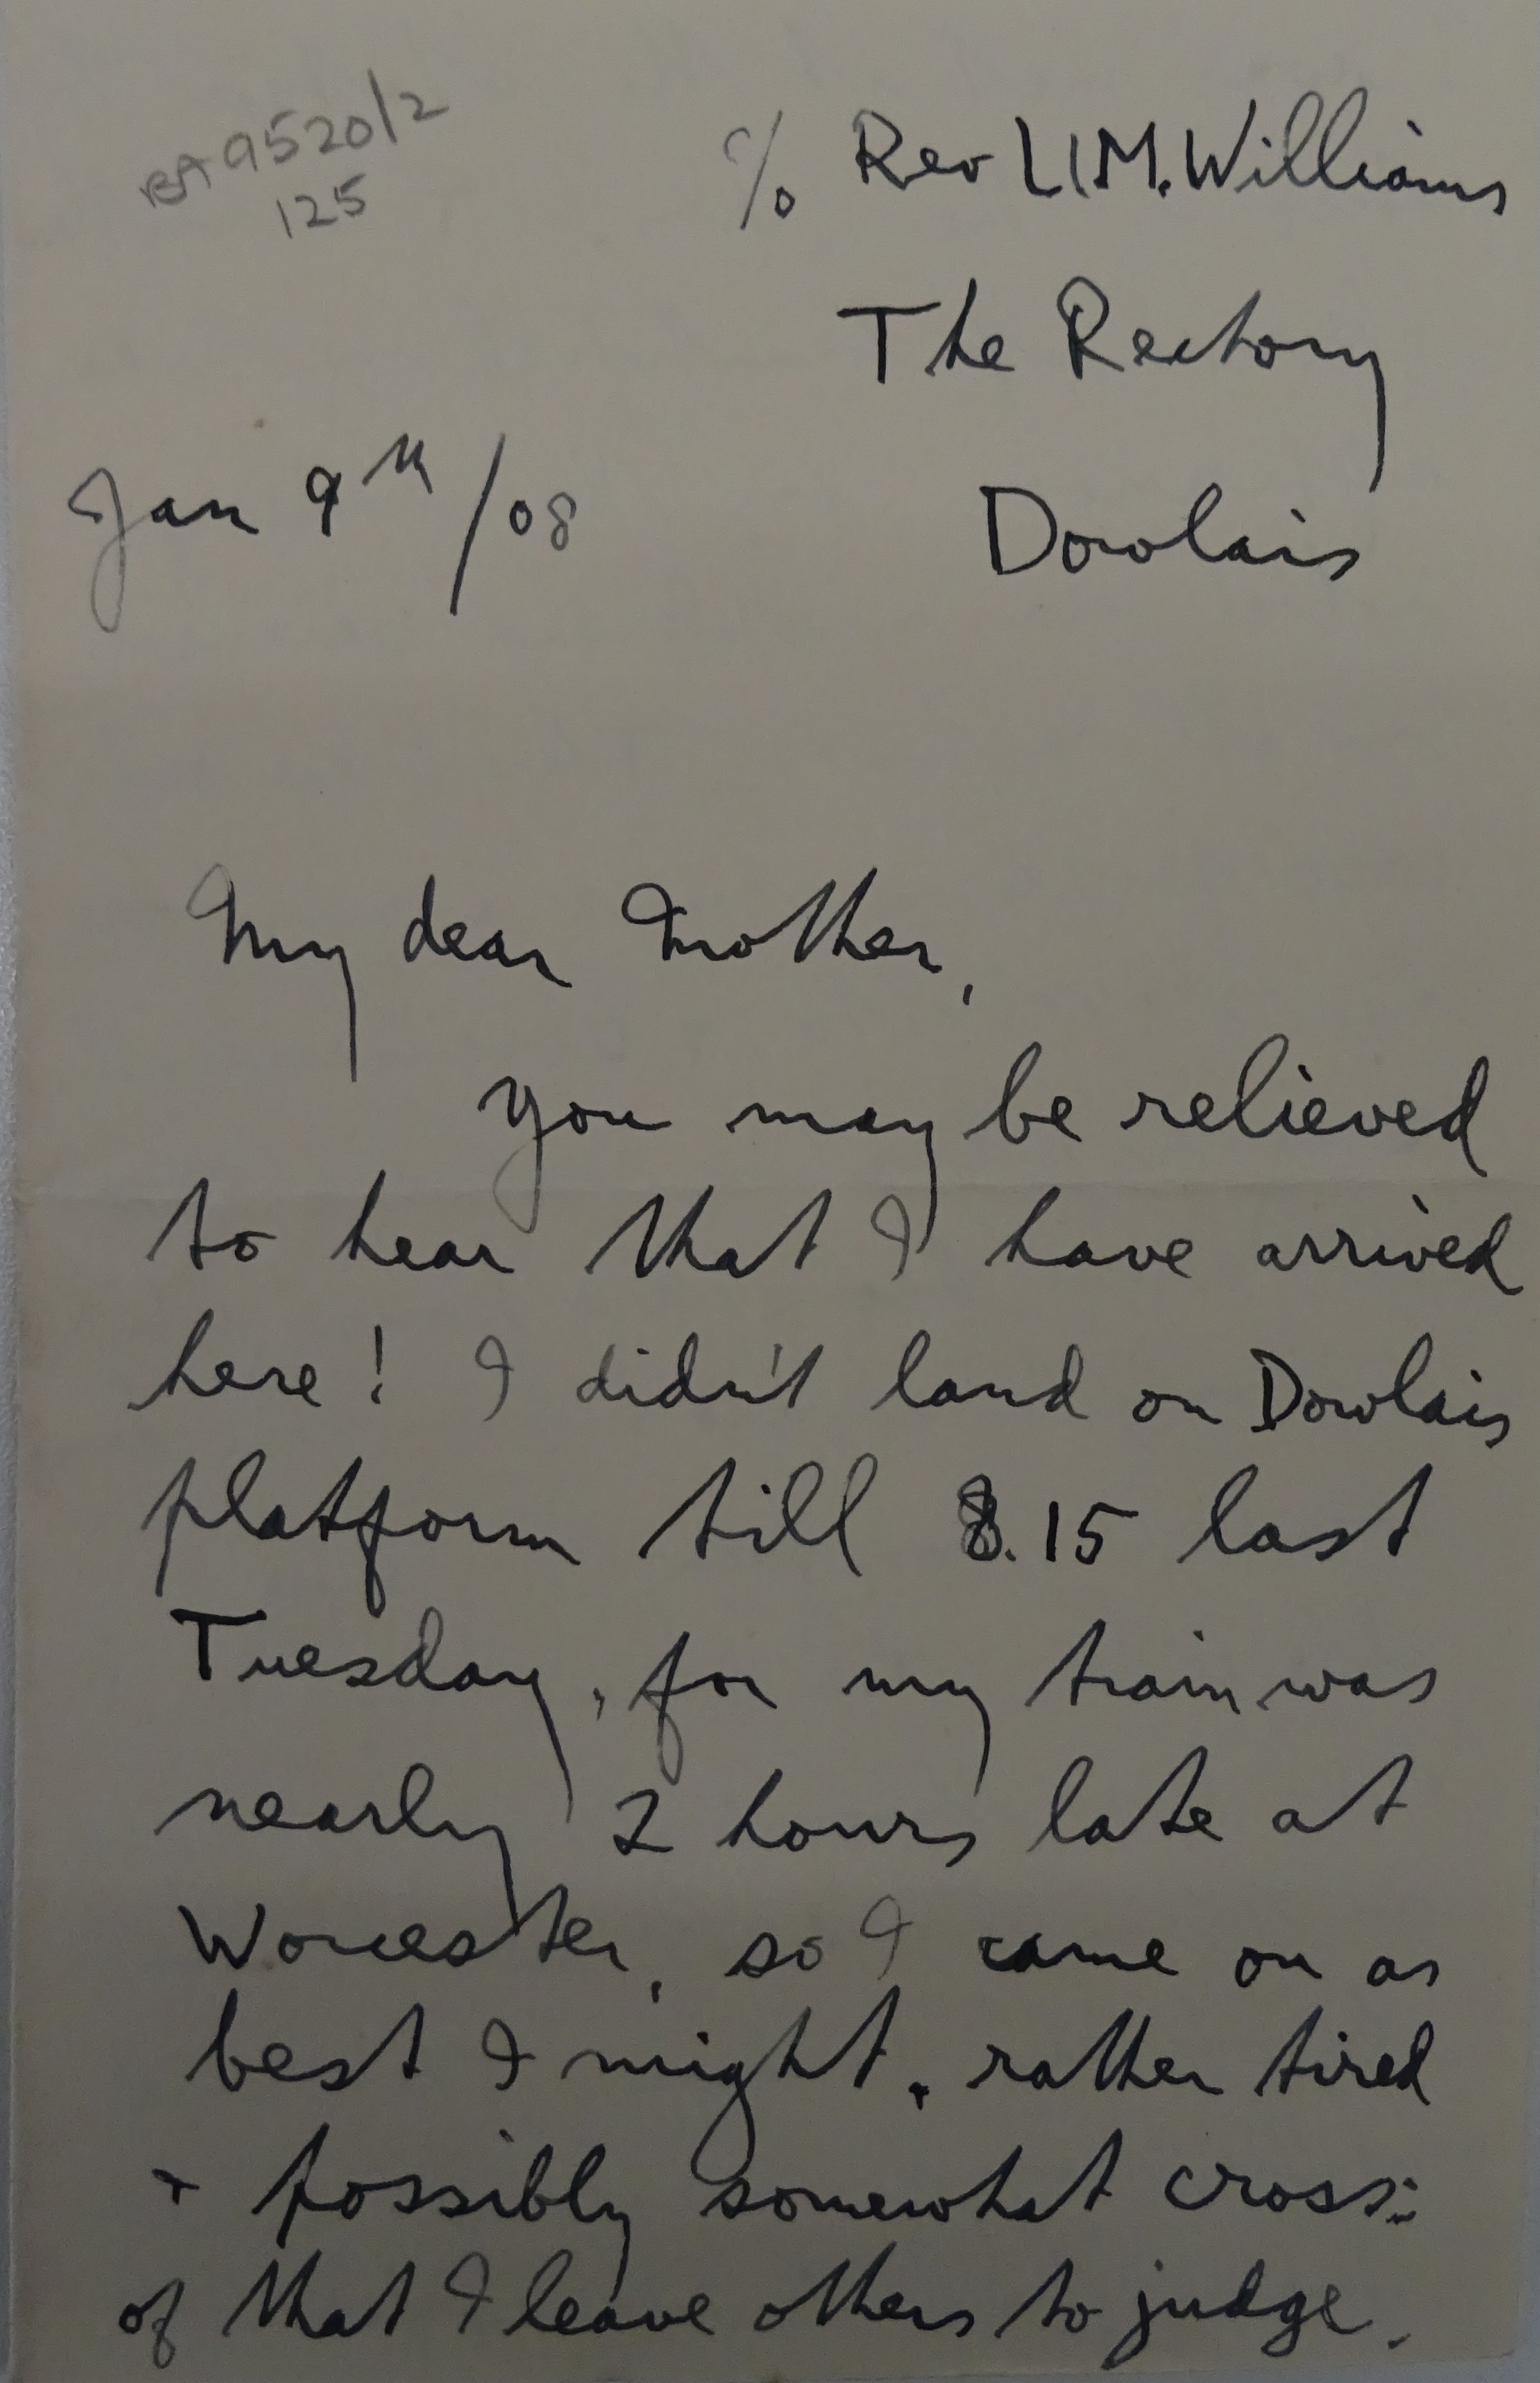 BA 9520/2
125
c/o Rev Ll M. Williams
The Rectory
Jan 9th/08
Dowlais
My dear Mother,
you may be relieved
to hear that I have arrived
here! I didn't land on Dowlais
platform till 8.15 last
Tuesday, for my train was
nearly 2 hours late at
Worcester, so I came on as
best I might, rather tired
+ possibly somewhat cross:
of that I leave others to judge.